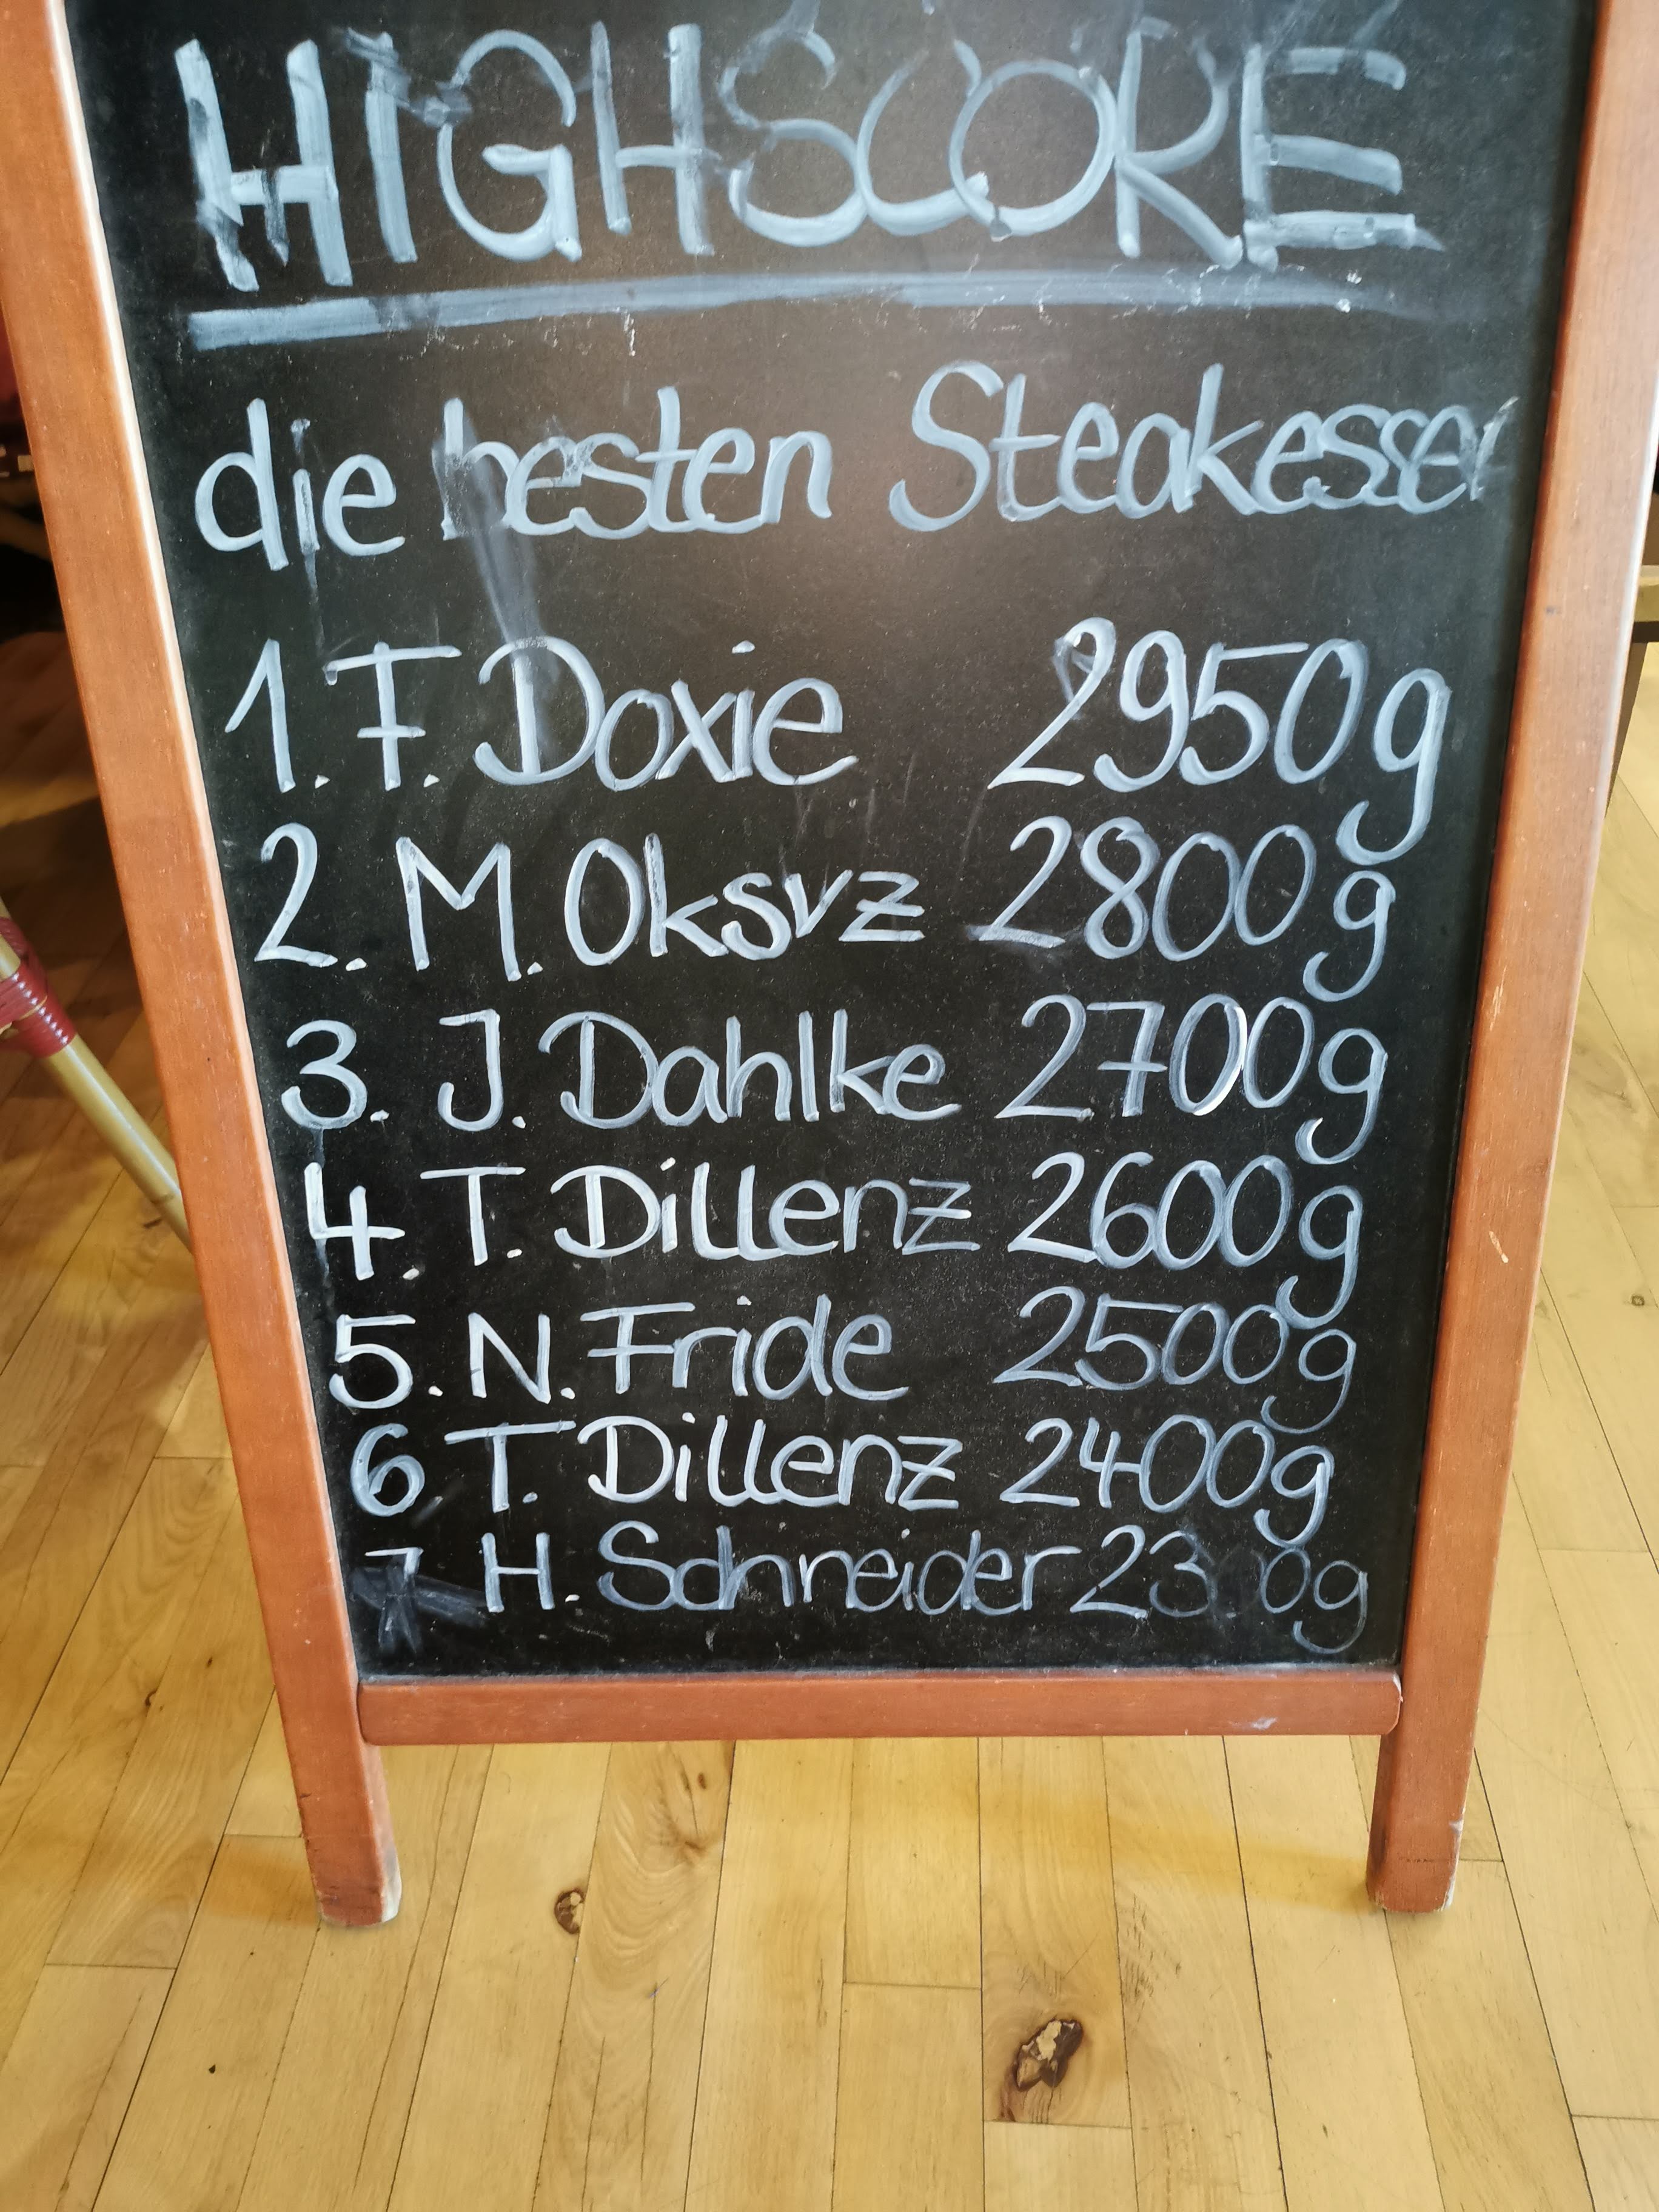 HIGHSCORE
die besten Steakesser
1. F. Doxie 2950g
2. M. Oksvz 2800g
3. J. Dahlke 2700g
4. T. Dillenz 2600g
5. N. Fride 2500g
6 T. Dillenz 2400g
7 H. Schneider